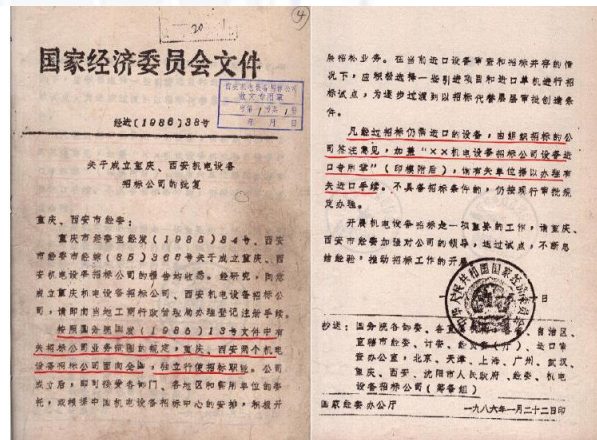 20
④
国家经济委员会文件
西安机电设备招标公司
收文专用章
年 月 日
经进(1986)38号
关于成立重庆、西安机电设备
招标公司的批复
重庆、西安市经委:
重庆市经委重经发(1985)84号、西安
市经委市经(85)368号关于成立重庆、西
安机电设备招标公司的报告均收悉。经研究,同意
成立重庆机电设备招标公司、西安机电设备招标公
司,请即向当地工商行政管理局办理登记注册手续。
按照国务院国发(1986)13号文件中有
关招标公司业务范围的规定,重庆、西安两个机电
设备招标公司面向全国,独立行使招标职能。公司
成立后,即可接受各部门、各地区和有用单位的委
托,或根据中国机电设备招标中心的安排,积极开
展招标业务。在当前进口设备审查和招标并存的情
况下,应积极选择一些引进项目和进口单机进行招
标试点,为逐步过渡到以招标代替层层审批创造条
件。
凡经过招标仍需进口的设备,由组织招标的公
司签注意见,加盖“××机电设备招标公司设备进
口专用章”(印模附后),请有关单位据以办理有
关进口手续。不具备招标条件的,仍按现行审批规
定办理。
开展机电设备招标是一项重要的工作,请重庆、
西安市经委加强对公司的领导,通过试点,不断总
结经验,推动招标工作的开展。
中华人民共和国国家经济委员会
日
抄送:国务院各部委、各直属机构、各省、自治区、
直辖市经委、计委、经贸委(厅)、进口审
查办公室,北京、天津、上海、广州、武汉、
重庆、西安、沈阳市人民政府、经委、机电
设备招标公司(筹备组)
国家经委办公厅 一九八六年一月二十二日印